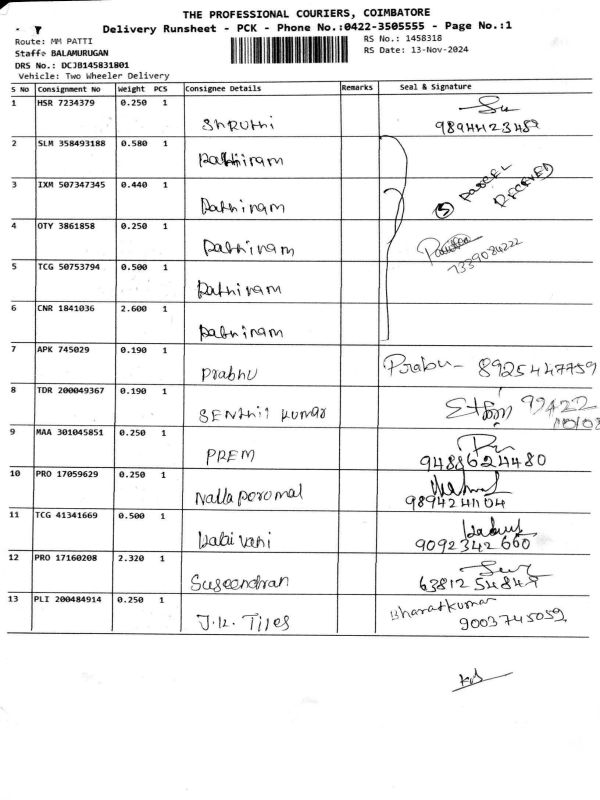 THE PROFESSIONAL COURIERS, COIMBATORE
Delivery Runsheet - PCK - Phone No.:0422-3505555 - Page No.:1
Route: MM PATTI RS No.: 1458318
Staff: BALAMURUGAN RS Date: 13-Nov-2024
DRS No.: DCJB145831801
Vehicle: Two Wheeler Delivery
S No Consignment No Weight PCS Consignee Details Remarks Seal & Signature
1 HSR 7234379 0.250 1 Shruthi 9894423489
2 SLM 358493188 0.580 1 Pathiram
3 IXM 507347345 0.440 1 Pathiram 5 PARCEL RECEIVED
4 OTY 3861858 0.250 1 Pathiram 7339084222
5 TCG 50753794 0.500 1 Pathiram
6 CNR 1841036 2.600 1 Pathiram
7 APK 745029 0.190 1 Prabhu Prabu - 8925447759
8 TDR 200049367 0.190 1 SENthil kumar 99422
9 MAA 301045851 0.250 1 PREM 9488624480
10 PRO 17059629 0.250 1 Nallaporomal 9894241104
11 TCG 41341669 0.500 1 Kalaivani 9092342660
12 PRO 17160208 2.320 1 Suseendran 6381254847
13 PLI 200484914 0.250 1 J.K. Tiles Bharatkumar 9003745059